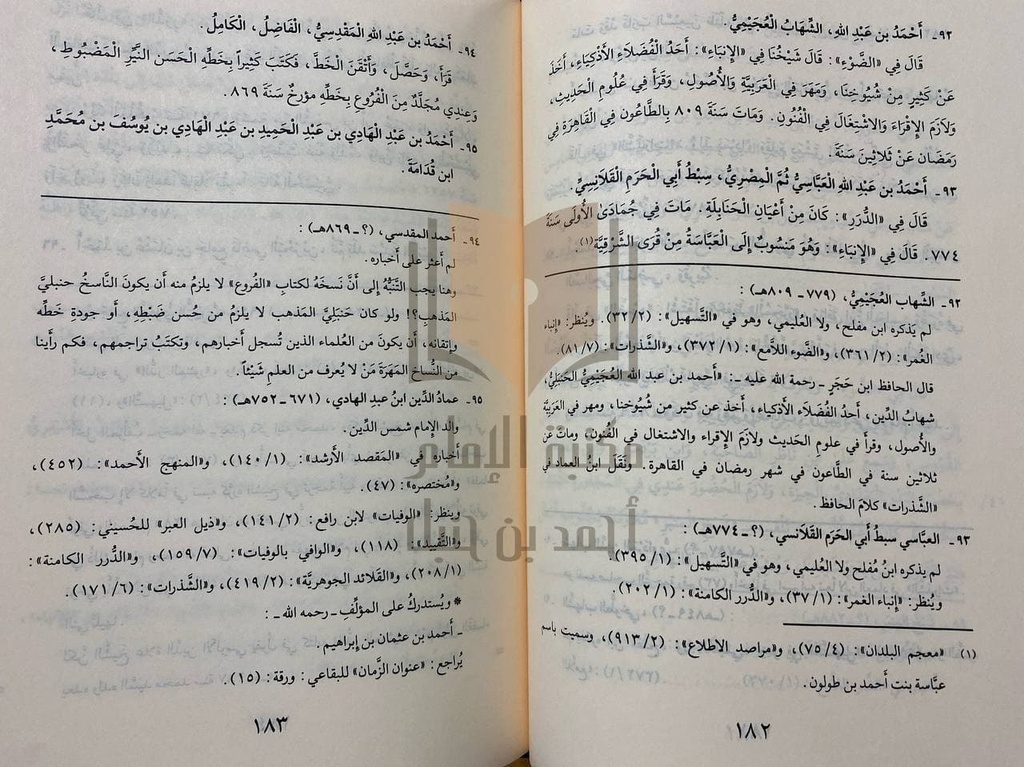 ٩٢ـ أَحْمَدُ بن عَبْدِ اللهِ، الشِّهَابُ العُجَيْمِيُّ.
قَالَ فِي «الضَّوْءِ»: قَالَ شَيْخُنَا فِي «الإِنبَاءِ»: أَحَدُ الفُضَلَاءِ الأَذْكِيَاءِ، أَخَذَ
عَنْ كَثِيرٍ مِنْ شُيُوخِنَا، وَمَهَرَ فِي العَرَبِيَّةِ وَالأُصُولِ، وَقَرَأَ فِي عُلُومِ الحَدِيثِ،
وَلَازَمَ الإِقْرَاءَ وَالاشْتِغَالَ فِي الفُنُونِ. وَمَاتَ سَنَةَ ٨٠٩ بِالطَّاعُونِ فِي القَاهِرَةِ فِي
رَمَضَانَ عَنْ ثَلَاثِينَ سَنَةً.
٩٣ـ أَحْمَدُ بن عَبْدِ اللهِ العَبَّاسِيُّ ثُمَّ المِصْرِيُّ، سِبْطُ أَبِي الحَرَمِ القَلَانِسِيِّ.
قَالَ فِي «الدُّرَرِ»: كَانَ مِنْ أَعْيَانِ الحَنَابِلَةِ. مَاتَ فِي جُمَادَىٰ الأُولَى سَنَةَ
٧٧٤. قَالَ فِي «الإِنبَاءِ»: وَهُوَ مَنْسُوبٌ إِلَى العَبَّاسَةِ مِنْ قُرَى الشَّرْقِيَّةِ (١).
٩٢ـ الشِّهاب العُجَيْمِيُّ، (٧٧٩ـ٨٠٩هـ):
لم يَذكره ابن مفلح، ولا العُليمي، وهو في «التَّسهيل»: (٢/ ٣٢). ويُنظر: «إنباء
الغُمر»: (٢/ ٣٦١)، و«الضَّوء اللَّامع»: (١/ ٣٧٢)، و«الشَّذرات»: (٧/ ٨١).
قال الحافظ ابن حَجَرٍ ـ رحمة الله عليه ـ: «أحمد بن عبد الله العُجَيْمِيُّ الحَنْبَلِيُّ،
شهابُ الدِّين، أحدُ الفُضَلَاءِ الأذكياء، أخذ عن كثير من شُيُوخنا، ومهر في العَرَبيَّة
والأصول، وقرأ في علومِ الحديث ولازَمَ الإقراء والاشتغال في الفُنُون، وماتَ عن
ثلاثين سنة في الطَّاعون في شهر رمضان في القاهرة. ونَقَلَ ابنُ العماد في
«الشَّذرات» كلامَ الحافظ.
٩٣ـ العبَّاسي سبطُ أبي الحَرَم القَلَانسي، (؟ـ٧٧٤هـ):
لم يذكره ابنُ مُفلح ولا العُليمي، وهو في «التَّسهيل»: (١/ ٣٩٥).
ويُنظر: «إنباء الغمر»: (١/ ٣٧)، و«الدُّرر الكامنة»: (١/ ٢٠٢).
(١) «معجم البلدان»: (٤/ ٧٥)، و«مراصد الاطلاع»: (٢/ ٩١٣)، وسميت باسم
عبَّاسة بنت أحمد بن طولون.
١٨٢
٩٤ـ أَحْمَدُ بن عَبْدِ اللهِ المَقْدِسِيُّ، الفَاضِلُ، الكَامِلُ.
قَرَأَ، وَحَصَّلَ، وَأَتْقَنَ الخَطَّ، فَكَتَبَ كَثِيراً بِخَطِّهِ الحَسَنِ النَّيِّرِ المَضْبُوطِ،
وَعِنْدِي مُجَلَّدٌ مِنَ الفُرُوعِ بِخَطِّهِ مؤرخٌ سَنَةَ ٨٦٩.
٩٥ـ أَحْمَدُ بن عَبْدِ الهَادِي بن عَبْدِ الحَمِيدِ بن عَبْدِ الهَادِي بن يُوسُفَ بن مُحَمَّدِ
ابن قُدَامَةَ.
٩٤ـ أحمد المقدسي، (؟ـ٨٦٩هـ):
لم أعثر على أخباره.
وهنا يجب التَّنَبُّهُ إلى أنَّ نَسخَهُ لكتاب «الفُروع» لا يلزمُ منه أن يكونَ النَّاسخُ حنبليَّ
المَذهبِ؟! ولو كان حَنبَليَّ المَذهب لا يلزم من حُسن ضَبْطِه، أو جودةِ خَطِّه
وإتقانه، أن يكونَ من العُلماء الذين تُسجل أخبارهم، وتكتَبُ تراجمهم، فكم رأينا
من النُّسَّاخِ المَهَرَة مَنْ لا يُعرف من العلمِ شَيْئاً.
٩٥ـ عمادُ الدِّين ابنُ عبدِ الهادي، (٦٧١ـ٧٥٢هـ):
والد الإمام شمس الدِّين.
أخبارُه في «المَقصد الأرشد»: (١/ ١٤٠)، و«المنهج الأحمد»: (٤٥٢)،
و«مُختصره»: (٤٧).
ويُنظر: «الوفيات» لابن رافع: (٢/ ١٤١)، و«ذيل العبر» للحُسيني: (٢٨٥)،
و«التَّقييد»: (١١٨)، و«الوافي بالوفيات»: (٧/ ١٥٩)، و«الدُّرر الكامنة»:
(١/ ٢٠٨)، و«القلائد الجوهريَّة»: (٢/ ٤١٩)، و«الشَّذرات»: (٦/ ١٧١).
* ويُستدركُ على المؤلِّفِ ـ رحمه الله ـ:
ـ أحمد بن عثمان بن إبراهيم.
يُراجع: «عنوان الزَّمان» للبقاعي: ورقة: (١٥).
١٨٣
مكتبة الإمام
أحمد بن حنبل